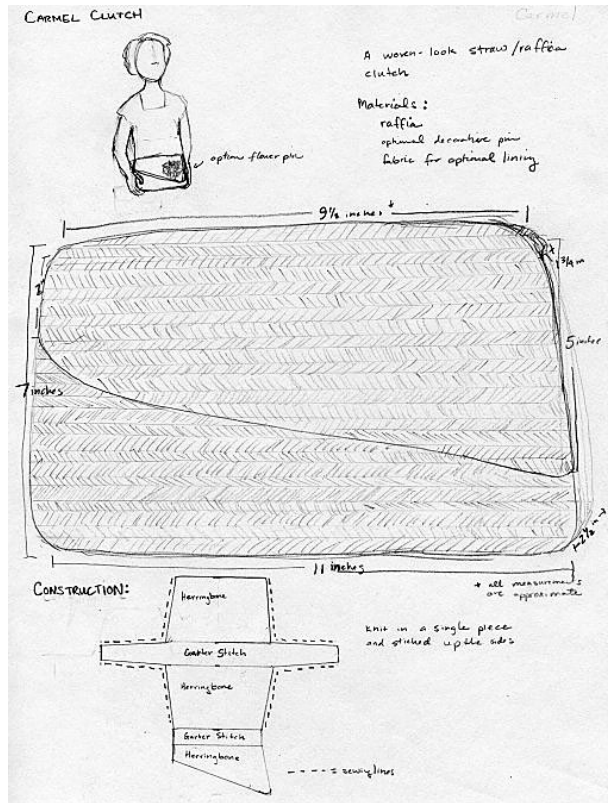 CARMEL CLUTCH
Carmel
A woven-look straw/raffia
clutch
Materials:
raffia
optional decorative pin
fabric for optional lining
option flower pin
9 1/2 inches *
3/4 in
2"
5 inches
7 inches
11 inches
* all measurements
are approximate
CONSTRUCTION:
Herringbone
Garter Stitch
Herringbone
Garter Stitch
Herringbone
Knit in a single piece
and stitched up the sides
---- = sewing lines